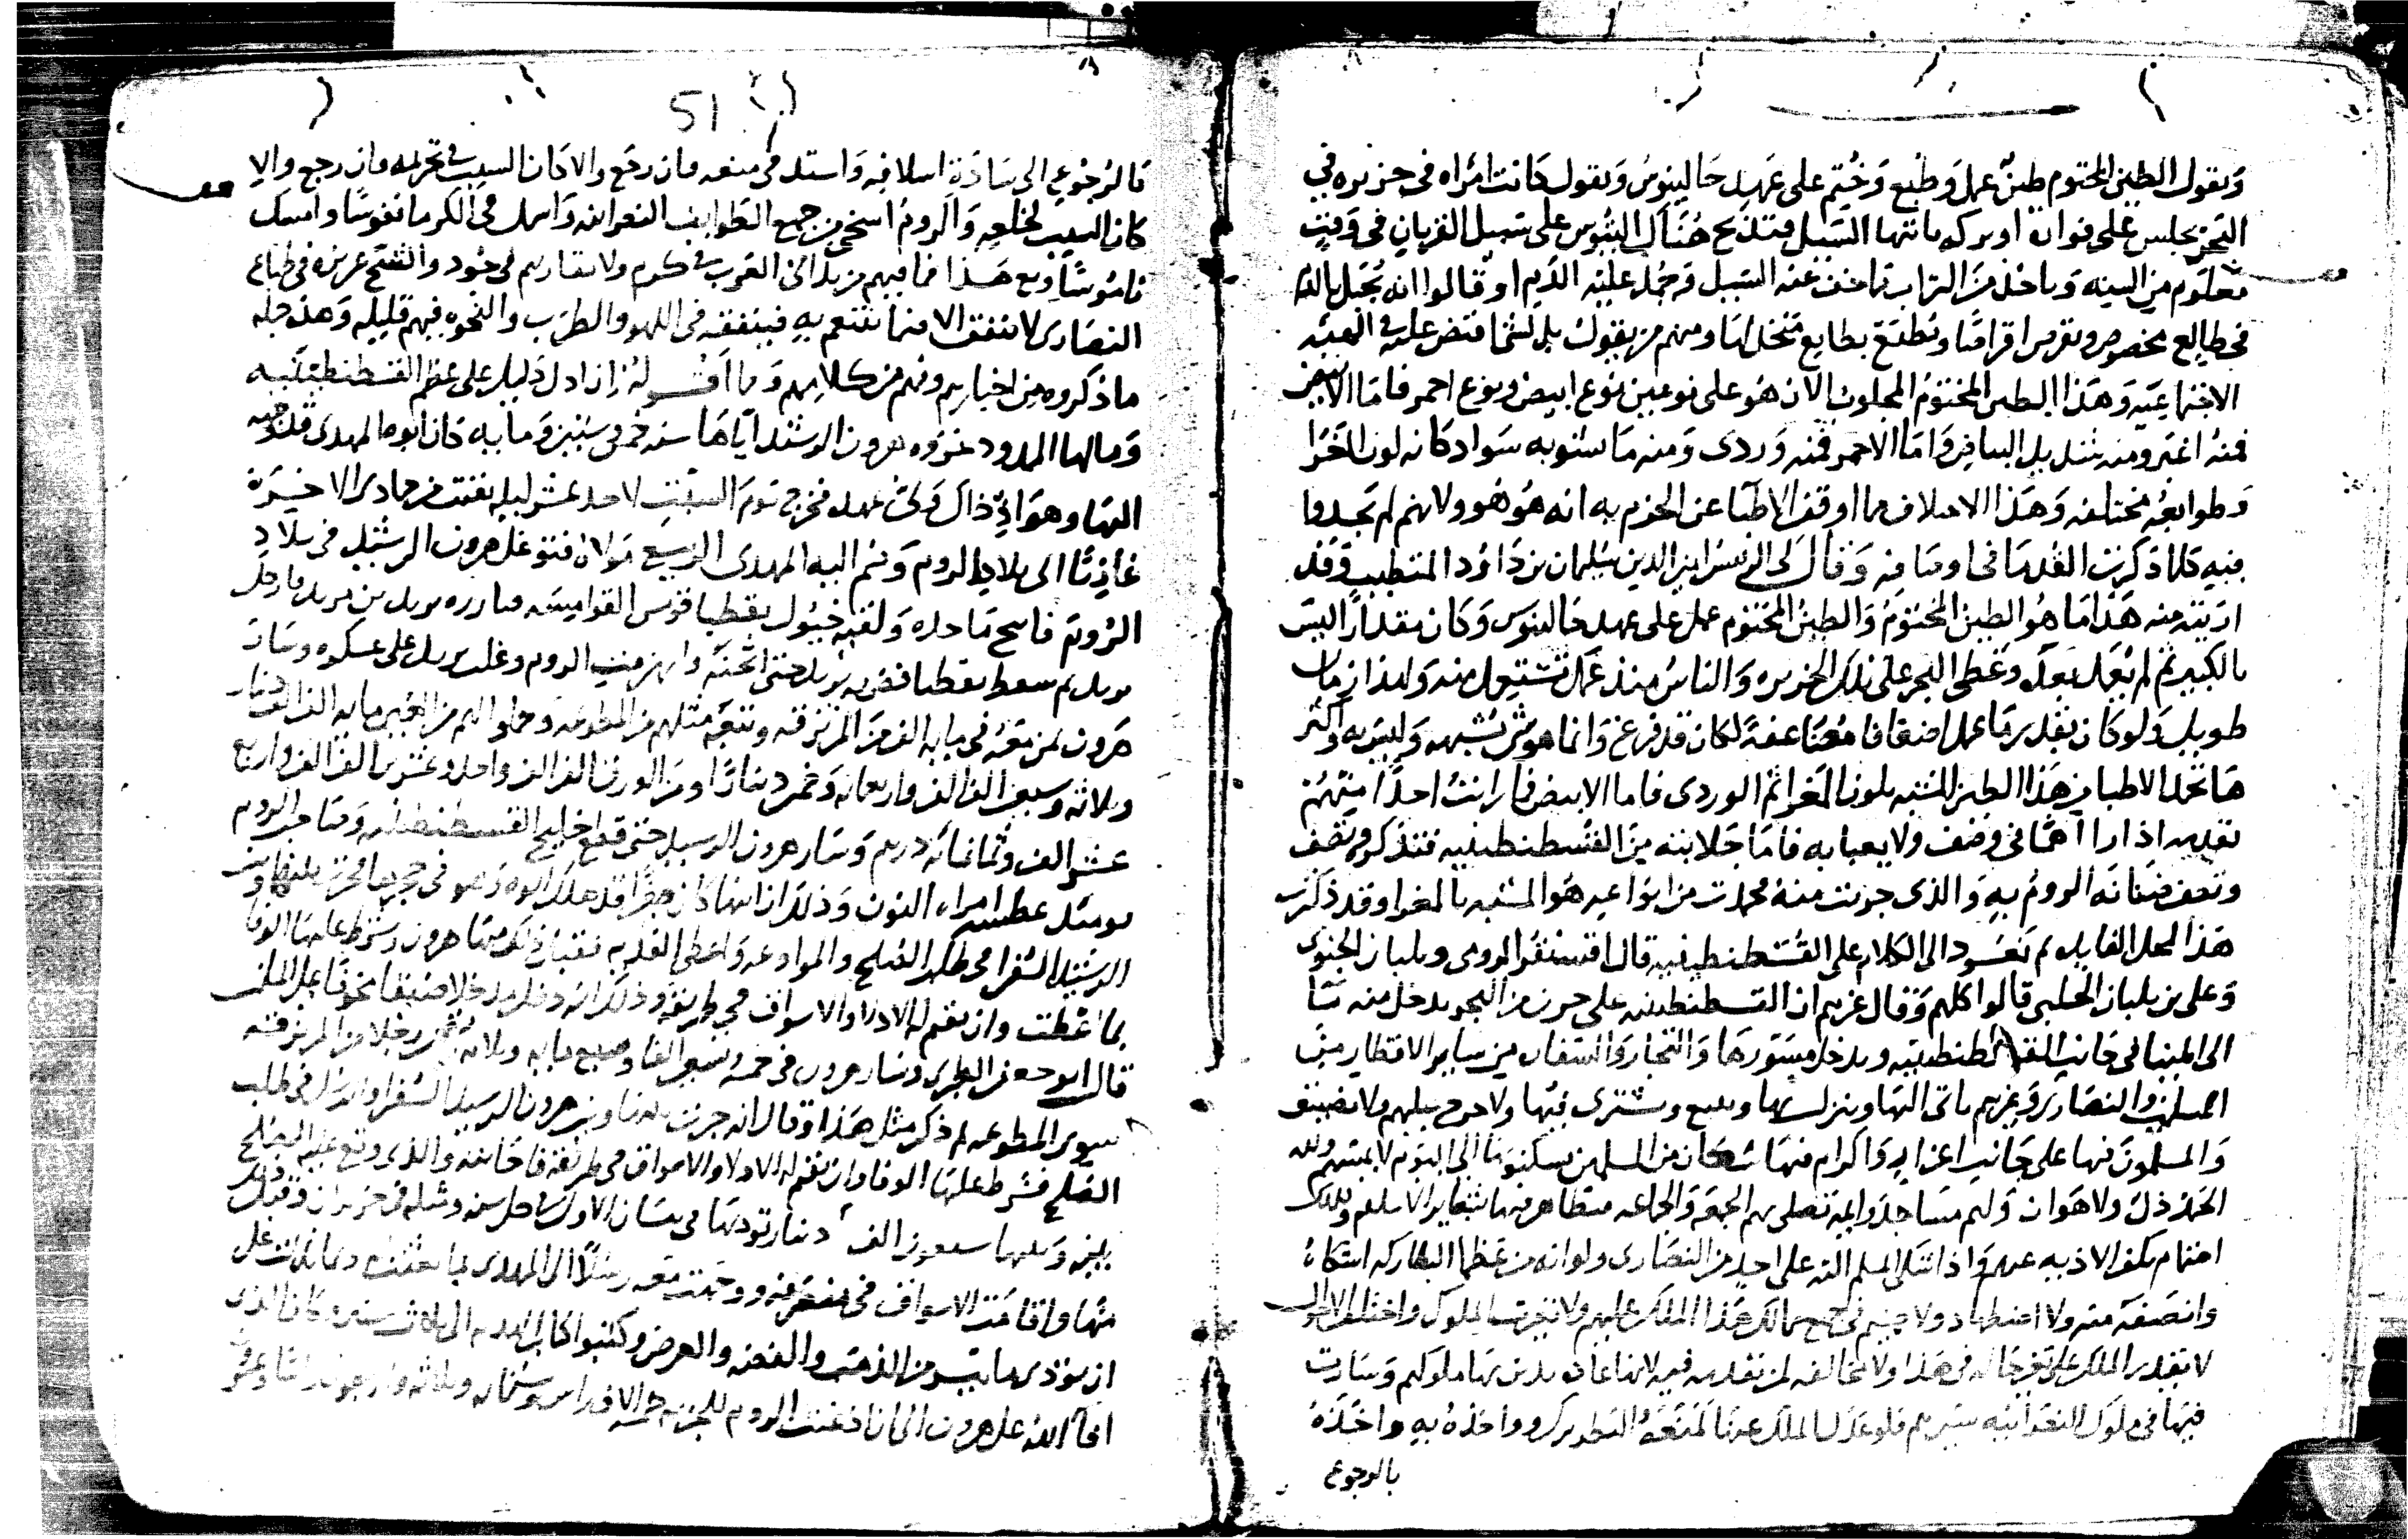 ويقول الطين المختوم طين عمل وطبع وختم على عهد جالينوس ويقول كانت امراه في جزيره في
البحر تجلس على فواره او بركه ياتيها السيل فتذبح هناك التيوس على سبيل القربان في وقت
معلوم من السنه وياخذ من التراب ما خف عنه السيل وجمد عليه الدم او قالوا انه تجبل بالدم
في طالع مخصوص ويقرص اقراصا وتطبع بطابع متخذ لها ومنهم من يقول بل لشما فتض عليه الهيئه
الاجتماعيه وهذا الطين المختوم المجلوب الان هو على نوعين نوع ابيض ونوع احمر فاما الابيض
فمنه اغبر ومنه شديد البياض واما الاحمر فمنه وردي ومنه ما يشوبه سواد كانه لون المغرا
وطوابعه مختلفه وهذا الاختلاف مما اوقف الاطبا عن الجزم به انه هو هو ولانهم لم يجدوا
فيه كلما ذكرت القدما في اوصافه وقال لي الريس امين الدين سليمان بن داود المتطبب وقد
اريته منه هذا ما هو الطين المختوم والطين المختوم عمل على عهد جالينوس وكان مقدارا ليس
بالكبير ثم لم يعمل بعده وغطى البحر على تلك الجزيره والناس منذ عمل تستعمل منه ولهذا زمان
طويل ولو كان بقدر ما عمل اضعافا مضاعفه لكان قد فرغ وانما هو شي يشبهه وليس به واكثر
ما تجد الاطبا من هذا الطين المشبه بلون المغرا ثم الوردي فاما الابيض فما رايت احدا منهم
يعتد به اذا راه في وصف ولا يعبا به فاما جلابته من القسطنطينيه فتذكره وتصف
وتصف ضنانه الروم به والذي جربت منه فحمدت من انواعه هو المشبه بالمغرا وقد ذكرت
هذا لمحل الفايده ثم نعود الى الكلام على القسطنطينيه قال اقسنقر الرومي وبلبان الجنوي
وعلي بن بلبان الحلبي قالوا كلهم وقال غيرهم ان القسطنطينيه على جون من البحر يدخل منه
الى المينا في جانب القسطنطينيه ويدخل مستورها والتجار والسفار من ساير الاقطار من
المسلمين والنصارى وغيرهم ياتي اليها وينزل بها ويبيع ويشتري فيها ولا حرج عليهم ولا تضييق
والمسلمون فيها على جانب اعزاز واكرام فيها سكان من المسلمين يسكنونها الى اليوم لا يمسهم ولله
الحمد ذل ولا هوان ولهم مساجد وايمه تصلي بهم الجمعه والجماعه متظاهرين بها بشعاير الاسلام وللملك
اهتمام بكف الاذيه عنهم واذا اشتكى المسلم اليه على احد من النصارى ولو انه من عظما البطاركه اشكاه
وانصفه منه ولا اضطهاد ولا ضيم في جميع ممالك هذا الملك عليهم ولا تغيرت الملوك واختلف الاحوال
لا يقدر الملك على تغير حاله في هذا ولا مخالفه لمن تقدمه فيه لانها عاده يدين بها ملوكهم وسارت
فيها في ملوك النصرانيه سيرهم فلو عدل الملك عنها لمنعه البطريرك وواخذه به واخذه
بالرجوع
51
فالرجوع الى ساده اسلافه واستد في منعه فان رجع والا كان السبب في تحريمه فان رجع والا
كان السبب لخلعه والروم اسخى من جميع الطوايف النصرانيه واسمك في الكرم نفوسا وامسك
ناموسا ومع هذا فما فيهم من يداني العرب في كرم ولا يقاربهم في جود والشح غريزه في طباع
النصارى لا ينفق الا فيما يتنعم به فينفقه في اللهو والطرب والنخوه فيهم قليله وهذه جمله
ما ذكروه من اخبارهم وفهم من كلامهم ومما اقوله ان ادل دليل على عظم القسطنطينيه
وما لها المدود غزوه هرون الرشيد اياها سنه خمس وستين ومايه كان ابوه المهدي قد وجهه
اليها وهو اذ ذاك ولي عهد فخرج يوم السبت لاحد عشر ليله بقيت من جمادى الاخيره
غازيا الى بلاد الروم وضم اليه المهدي الربيع مولاه فتوغل هرون الرشيد في بلاد
الروم فافتتح ماجده ولقيه خيول نقطيا قومس القوامسه فبارزه يزيد بن مزيد فارجل
يزيد ثم سقط نقطيا فضربه يزيد حتى اثخنه وانهزمت الروم وغلب يزيد على عسكره وسار
هرون بمن معه في مايه الف من المرتزقه وتبعه مثلهم من المطوعه وحملوا لهم من العين مايه الف الف دينار
وثلاثه وتسعين الفا واربعمايه وخمسين دينارا ومن الورق الف الف واحد وعشرين الف الف واربع
عشر الف وثمانمايه درهم وسار هرون الرشيد حتى قطع خليج القسطنطينيه وصاحب الروم
يومئذ عطسه امراه اليون وذلك ان ابنها كان صغيرا قد هلك ابوه وهو في حجرها فجرت بينها وبين
الرشيد السفرا في طلب الصلح والموادعه واعطى الفديه فقبل ذلك منها هرون وشرط عليها الوفا
بما اعطت وان تقيم له الادلا والاسواق في طريقه وذلك انه دخل مدخلا ضيقا مخوفا على المسلمين
قال ابو جعفر الطبري وسار هرون في خمسه وتسعين الفا وسبع مايه وثلاثه وتسعين رجلا من المرتزقه
سوى المطوعه ثم ذكر مثل هذا وقال انه جرت بينها وبين هرون الرشيد السفرا والرسل في طلب
الصلح فشرط عليها الوفا وان تقيم له الادلا والاسواق في طريقه فاجابته والذي وقع عليه الصلح
بينه وبينها سبعون الف دينار توديها في نيسان الاول في كل سنه ومثله في حزيران وقبل ذلك
منها واقامت الاسواق في منصرفه ووجهت معه رسلا الى المهدي بما بعثت
ان تودي ما تيسر من الذهب والفضه والعرض وكتبوا كتاب الهدنه الى ثلاث سنين وكان الذي
افا الله على هرون الى ان اذعنت الروم للجزيه خمسه الاف راس وستمايه وثلاثه واربعون راسا